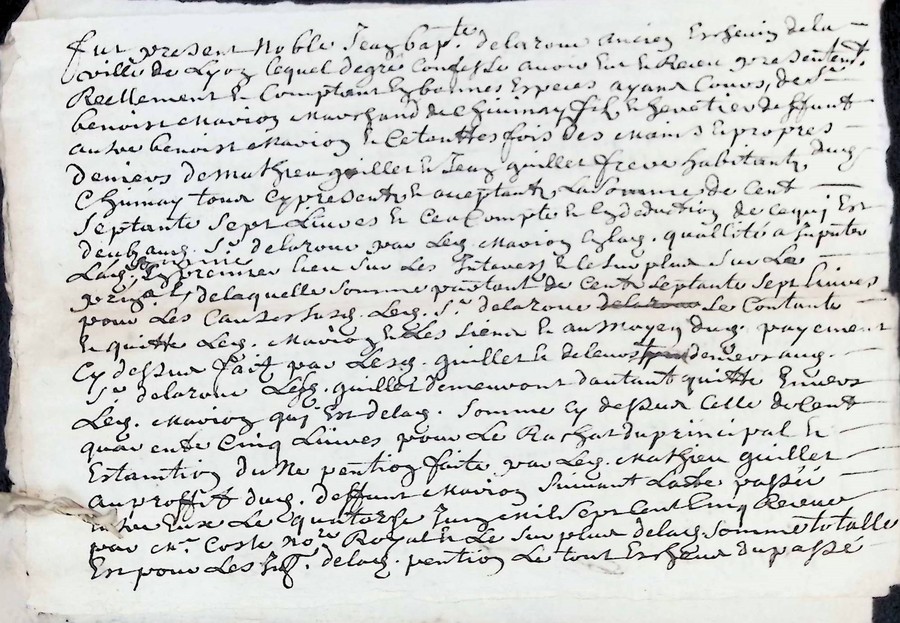 fut present Noble Jean bapt.e delaroue ancien Eschevin dela
ville de Lyon lequel degré confesse avoir Eu et Receu presentemt.
Reellement et Comptant En bonnes Especes ayant Cours, de Sr.
benoist Marion Marchand de Chuinay fils et heretier de deffunt
autre benoist Marion et Cetouttesfois des Mains et propres
deniers de Mathieu guillet et Jean guillet freres habitants dudg
Chuinay tous cy presents et acceptants, La somme de Cent
Septante Sept Livres et Cea Compte et En deduction de cequj Est
deub aud. Sr. delaroue par Led. Marion Esdq. quallité a Imputer
Lad. somme En premier lieu Sur Les Interets et le Surplus Sur Le
prin.al, delaquelle Somme partant de Cent Septante Sept Livres
pour Les Causes susd. Led. Sr. delaroue delaroue Se Contante
et quitte Led. Marion et Les Siens et au Moyen dud. payement
Cy dessus fait par Lesd. guillet et de leurs deniers aud.
Sr. delaroue Lesd. guillet demeuront dautant quitte Envers
Led. Marion quj Est delad. Somme cy dessus Celle de Cent
quarente Cinq Livres pour Le Rachat du principal et
Estaintion du Ne pention faite par Led. Mathieu guillet
au proffit dud. deffunt Marion Suivant Lacte passé
Entre Eux Le quatorse Juin Mil Sept Cent Cinq Receu
par Me. Coste No.re Royal et Le Surplus delad. Somme totalle
Est pour Les Int. delad. pention Le tout Escheus du passé